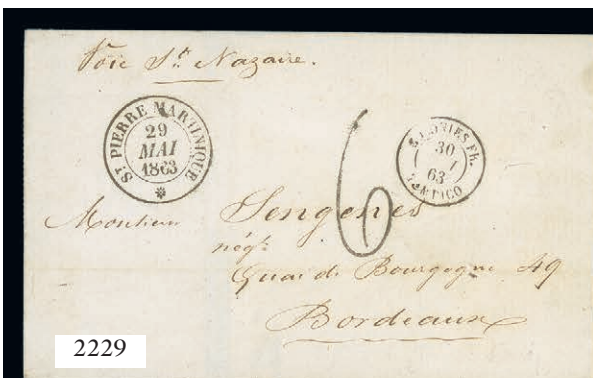 Voie St. Nazaire.
ST PIERRE MARTINIQUE
29
MAI
1863
COLONIES FR.
30
63
6
Monsieur
négt.
Quai de Bourgogne 49
Bordeaux
2229